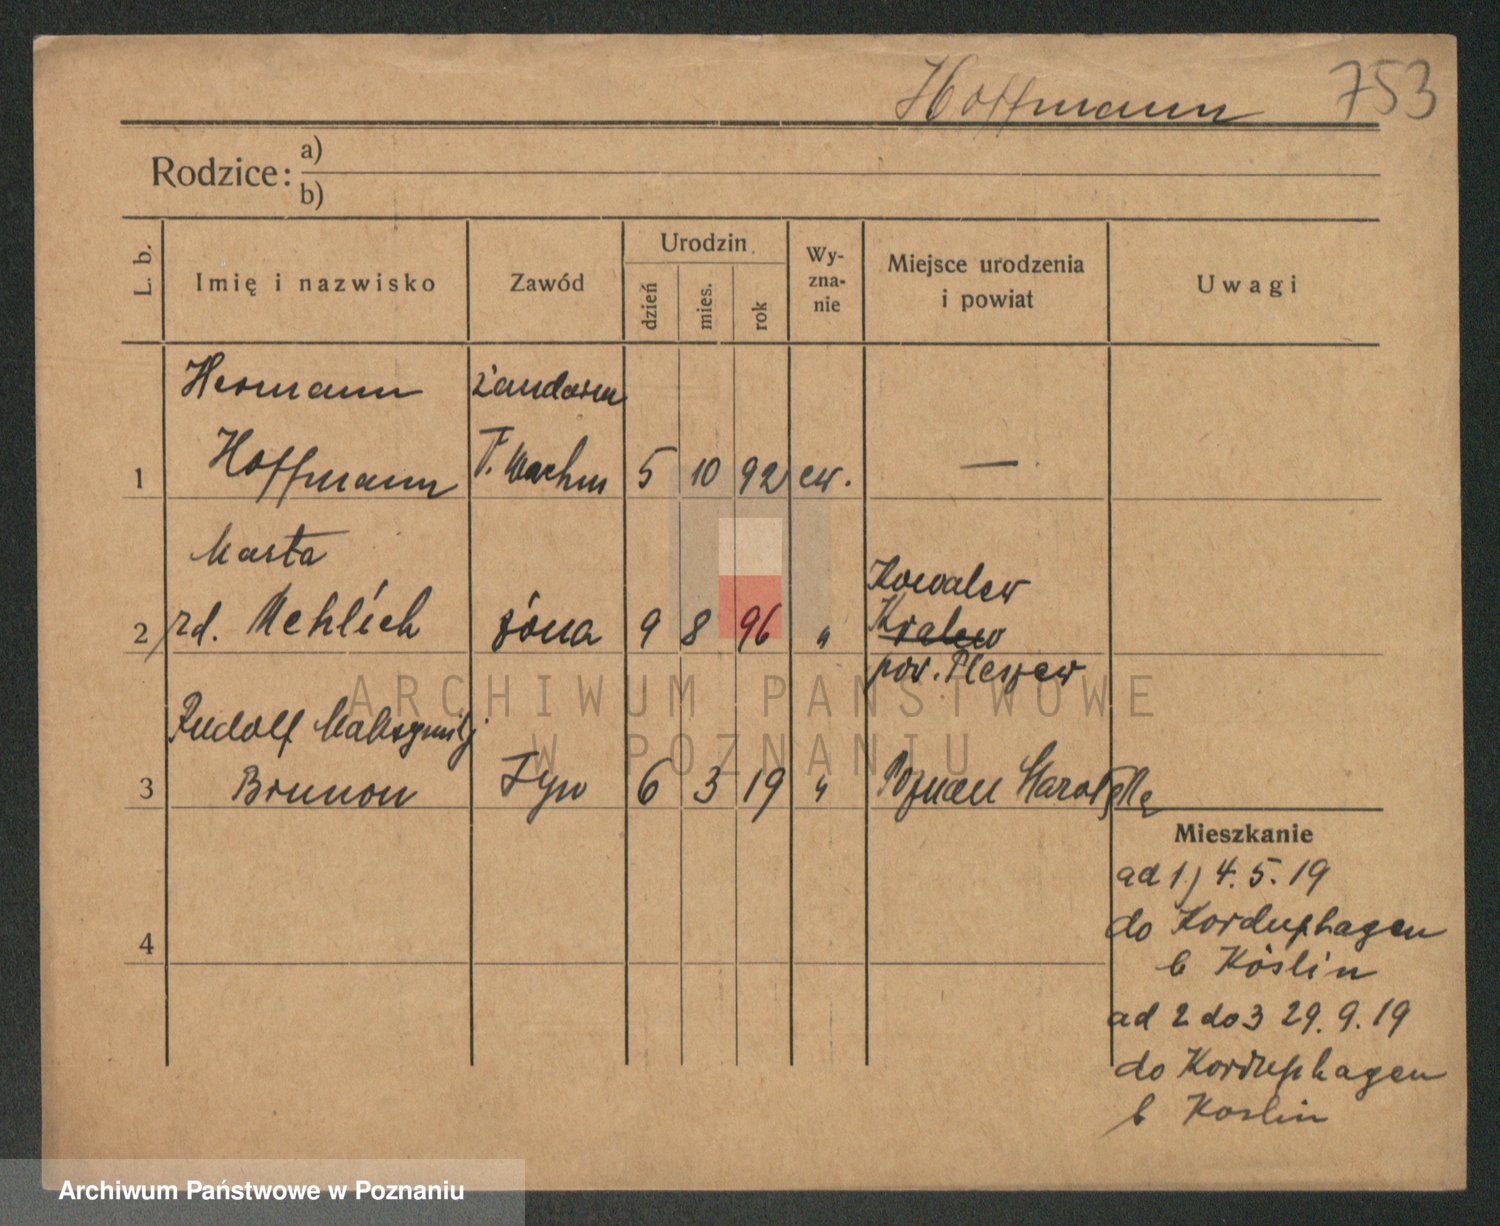 Hoffmann 753
Rodzice: a)
b)
L. b. Imię i nazwisko Zawód Urodzin dzień mies. rok Wy-zna-nie Miejsce urodzenia i powiat Uwagi
Hermann żandarm
1 Hoffmann 5 10 92 ew. —
Marta Kowalew
2 rd. Mehlich żona 9 8 96 " Kralew
pow. Pleszew
Rudolf Maksymilj
3 Brunon syn 6 3 19 " Poznań
Mieszkanie
ad 1) 4. 5. 19
do Korduphagen
b Köslin
4
ad 2 do 3 29. 9. 19
do Korduphagen
b Koslin
ARCHIWUM PAŃSTWOWE
W POZNANIU
Archiwum Państwowe w Poznaniu